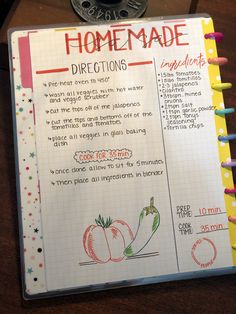 HOMEMADE
DIRECTIONS
Pre-heat oven to 450°
wash all veggies with hot water
and veggie scrubber
cut the tops off the jalapenos
cut the tops and bottoms off of the
tomatillos and tomatoes
place all veggies in glass baking
dish
COOK FOR 35 min
once done allow to sit for 5 minutes
Then place all ingredients in blender
ingredients
tomatoes
tomatillos
2-3 jalapenos
cilantro
minced
onions
salt
garlic
powder
Tony's
seasoning
tortilla chips
PREP
TIME: 10 min
COOK
TIME: 35
min